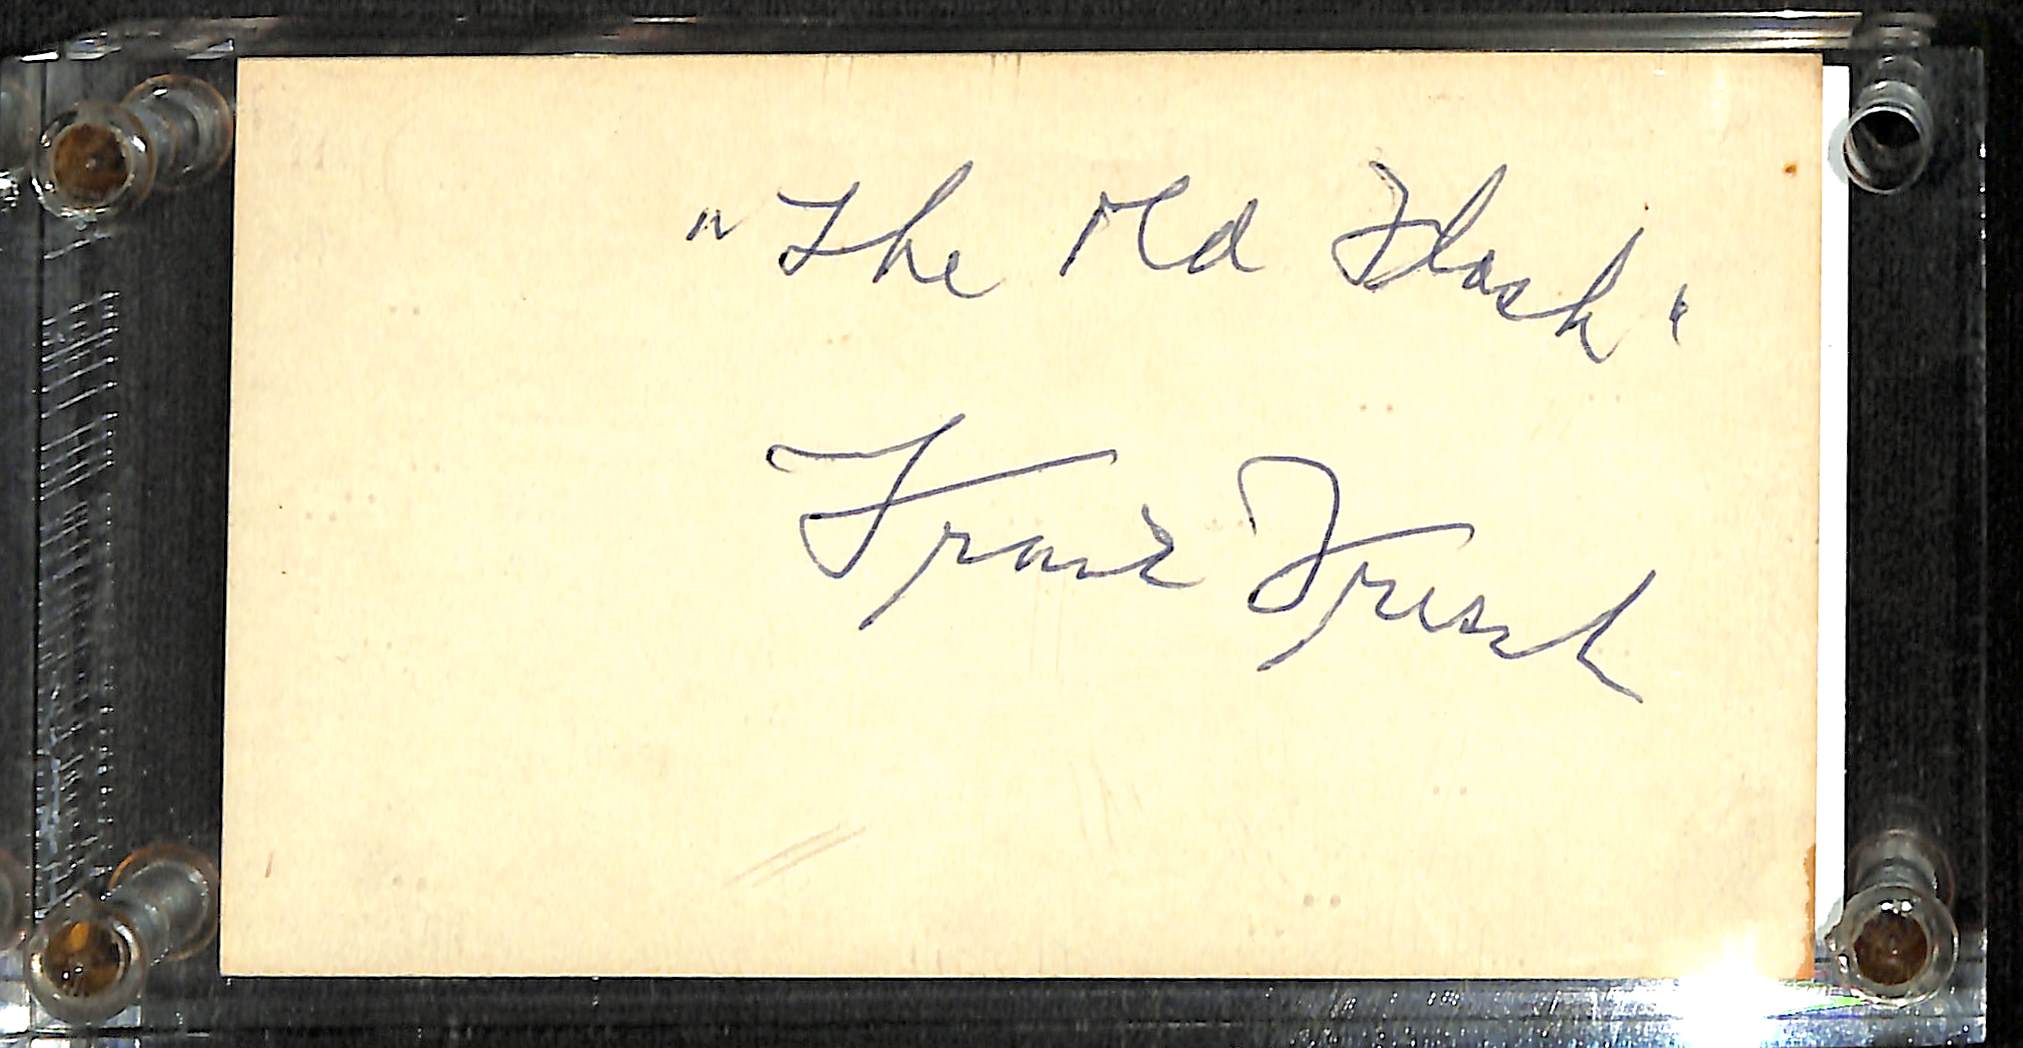 "The Old Flash"
Frank Frisch